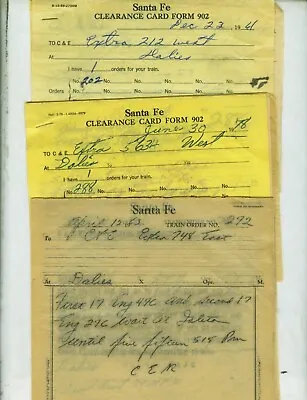 Santa Fe
CLEARANCE CARD FORM 902
Dec 22 1961
To C & E Extra 212 West
At Dalies
I have 1 orders for your train.
No. 202 No. No. No. No.
Orders No. No. No. No.
Santa Fe
CLEARANCE CARD FORM 902
June 30 1978
To C & E Extra 5634 West
At Dalies
I have 1 orders for your train.
No. 288 No. No. No.
Santa Fe
April 12 53 TRAIN ORDER NO. 292
To C&E Extra 748 East
At Dalies X Opr. M.
First 17 Eng 496 and Second 17
Eng 276 Wait at Isleta
Until five fifteen 515 Pm
C E R